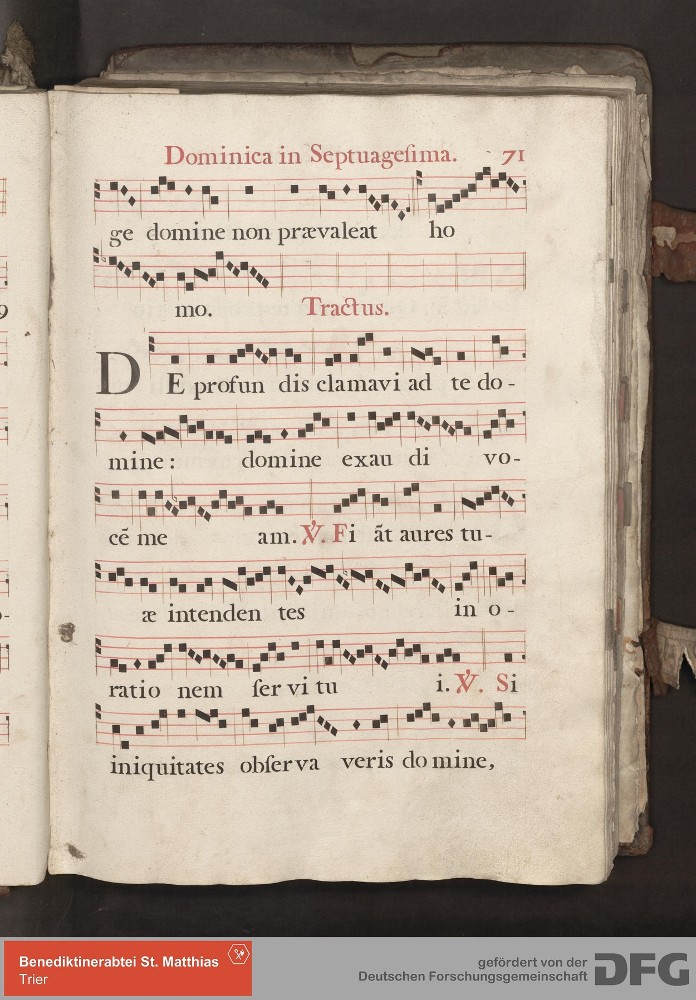 Dominica in Septuageſima. 71
ge domine non prævaleat ho
mo. Tractus.
DE profun dis clamavi ad te do-
mine: domine exau di vo-
cẽ me am. ℣. Fi ãt aures tu-
æ intenden tes in o-
ratio nem ſer vi tu i. ℣. Si
iniquitates obſer va veris do mine,
Benediktinerabtei St. Matthias
Trier
gefördert von der
Deutschen Forschungsgemeinschaft
DFG